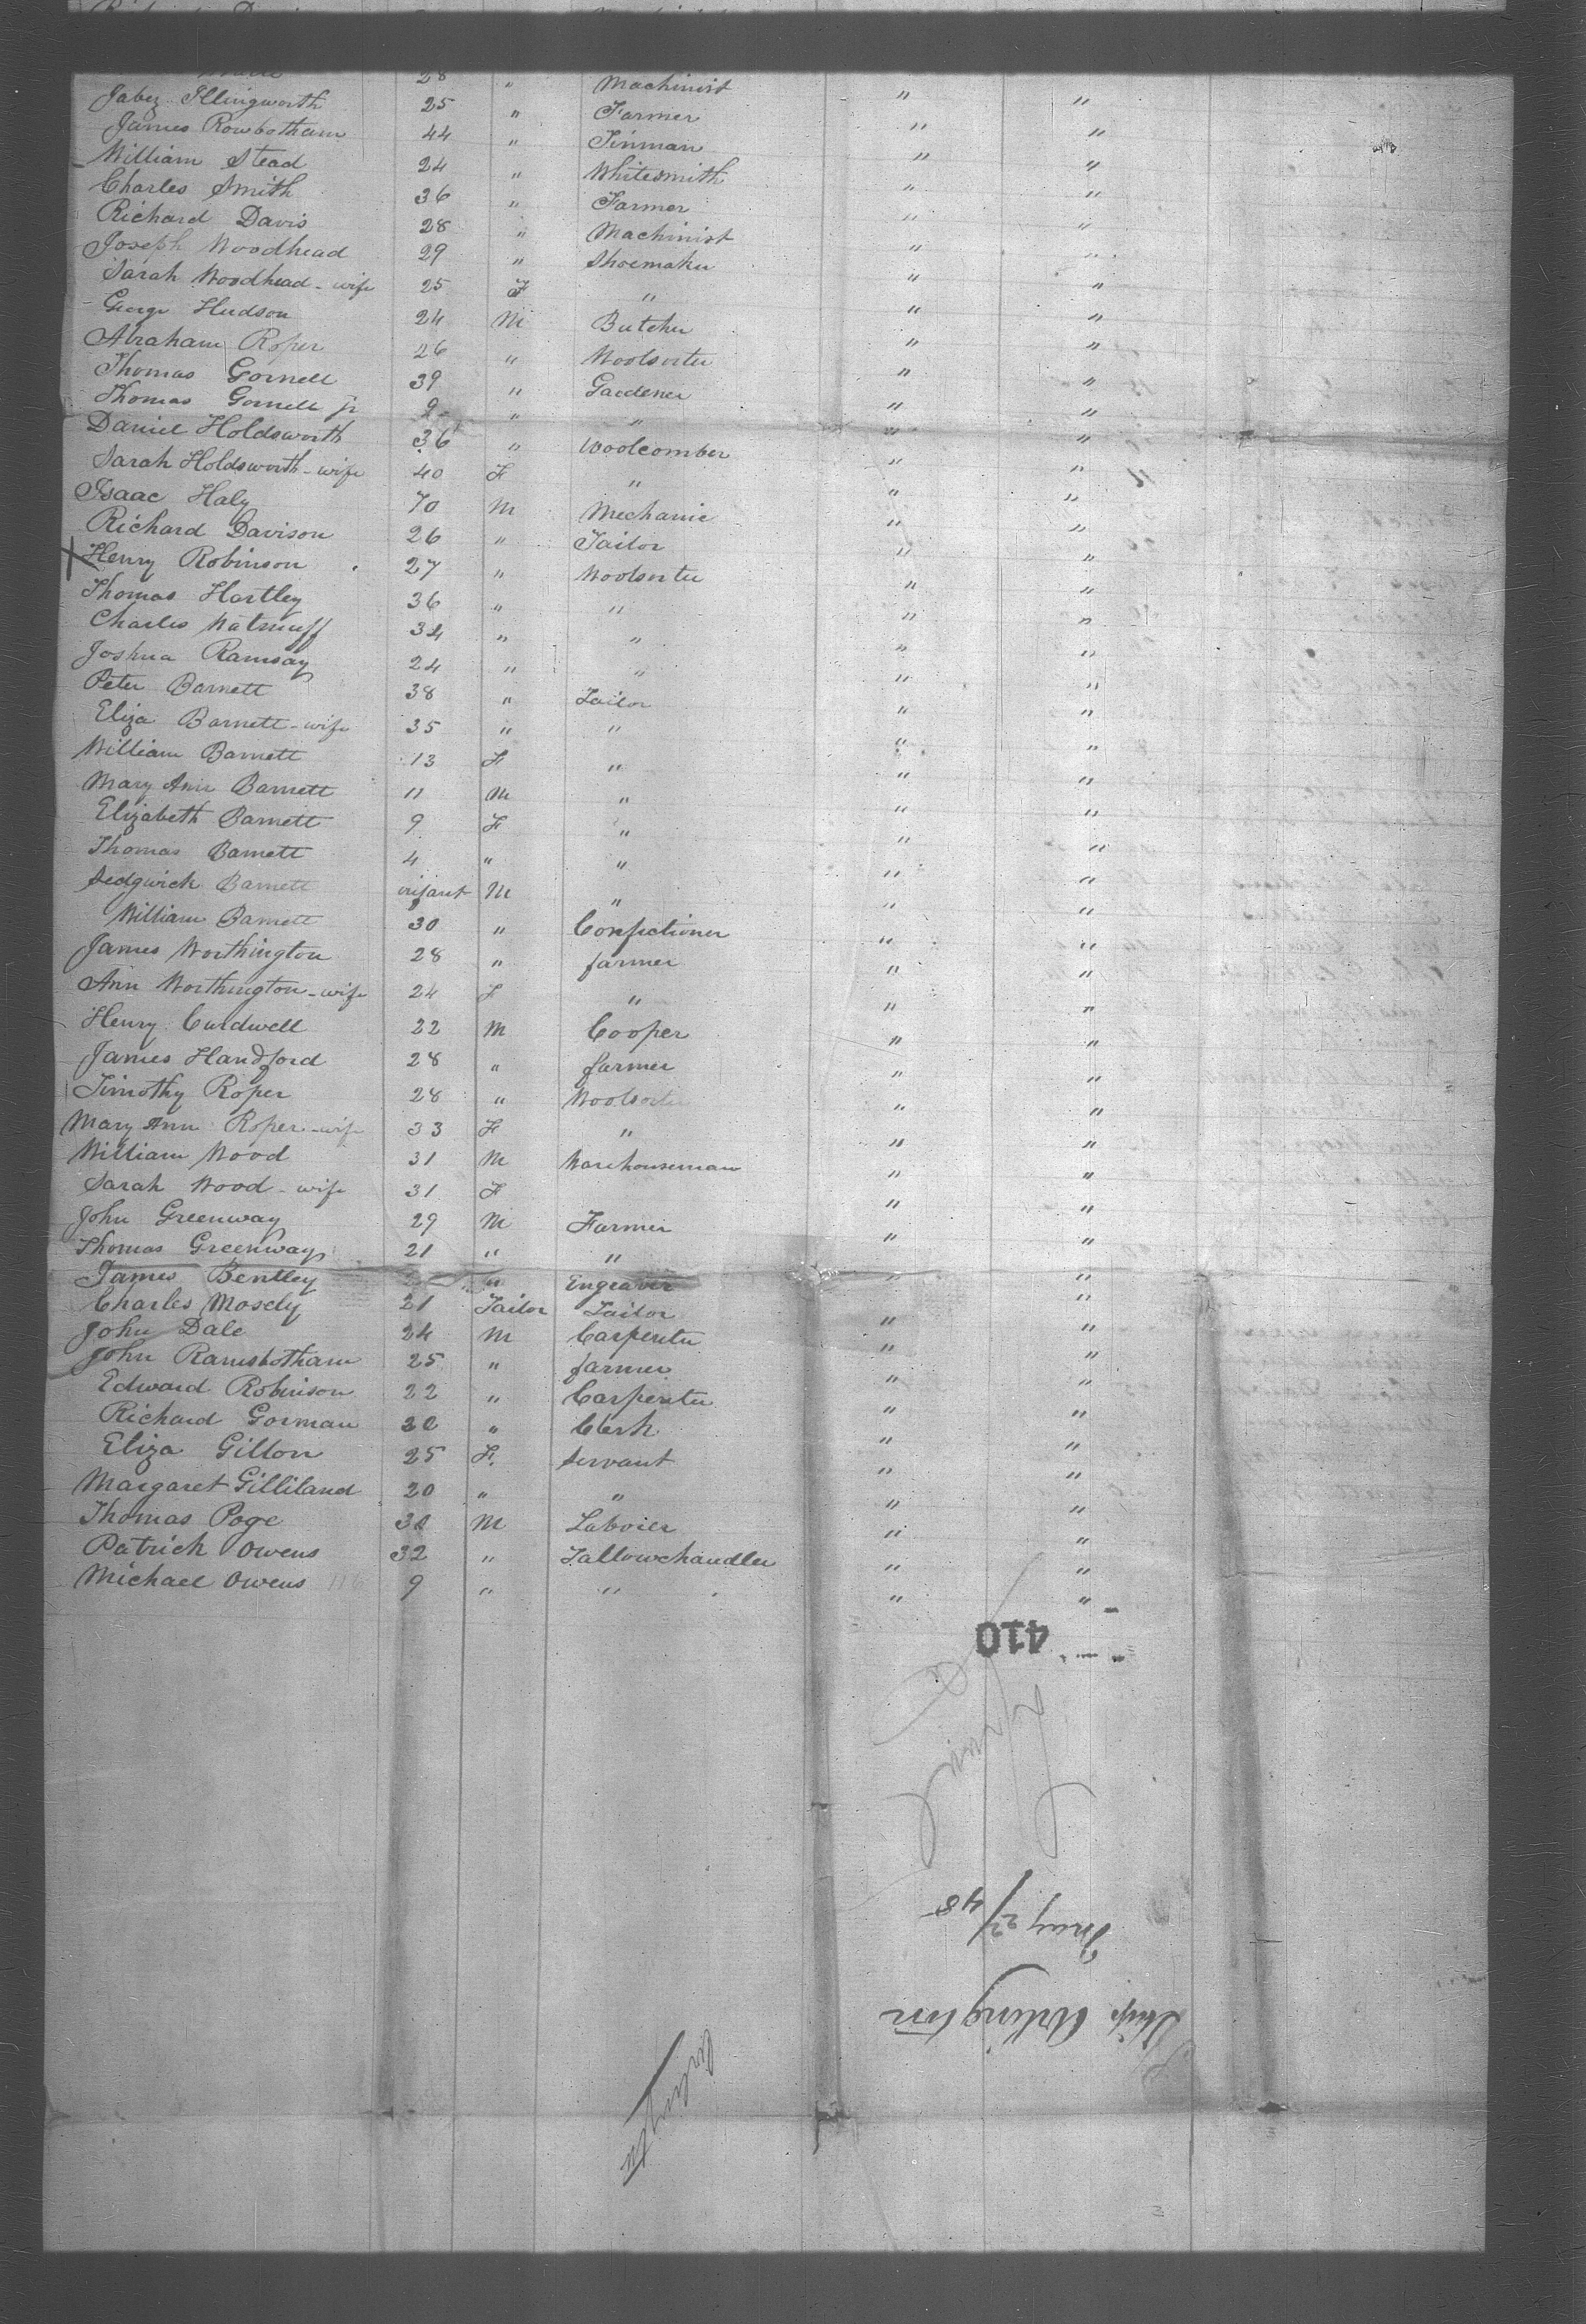 28 " Machinist " "
Jabez Illingworth 25 " Farmer " "
James Rowbotham 44 " Tinman " "
William Stead 24 " Whitesmith " "
Charles Smith 36 " Farmer " "
Richard Davis 28 " Machinist " "
Joseph Woodhead 29 " Shoemaker " "
Sarah Woodhead - wife 25 F " " "
George Hudson 24 M Butcher " "
Abraham Roper 26 " Woolsorter " "
Thomas Gornell 39 " Gardener " "
Thomas Gornell jr 9 " " " "
Daniel Holdsworth 36 " Woolcomber " "
Sarah Holdsworth - wife 40 F " " "
Isaac Haly 70 M Mechanic " "
Richard Davison 26 " Tailor " "
Henry Robinson 27 " Woolsorter " "
Thomas Hartley 36 " " " "
Charles Watmuff 34 " " " "
Joshua Ramsay 24 " " " "
Peter Barnett 38 " Tailor " "
Eliza Barnett - wife 35 " " " "
William Barnett 13 F " " "
Mary Ann Barnett 11 M " " "
Elizabeth Barnett 9 F " " "
Thomas Barnett 4 " " " "
Sedgwick Barnett infant M " " "
William Barnett 30 " Confectioner " "
James Worthington 28 " farmer " "
Ann Worthington - wife 24 F " " "
Henry Cardwell 22 M Cooper " "
James Handford 28 " farmer " "
Timothy Roper 28 " Woolsorter " "
Mary Ann Roper - wife 33 F " " "
William Wood 31 M Warehouseman " "
Sarah Wood - wife 31 F " "
John Greenway 29 M Farmer " "
Thomas Greenway 21 " " " "
James Bentley " Engraver " "
Charles Mosely 21 Tailor Tailor " "
John Dale 24 M Carpenter " "
John Ramsbotham 25 " farmer " "
Edward Robinson 22 " Carpenter " "
Richard Gorman 22 " Clerk " "
Eliza Gillon 25 F. Servant " "
Margaret Gilliland 20 " " " "
Thomas Poge 30 M Laborer " "
Patrick Owens 32 " Tallowchandler " "
Michael Owens 116 9 " " " "
410
May 27/48
Ship Arlington
Arlington